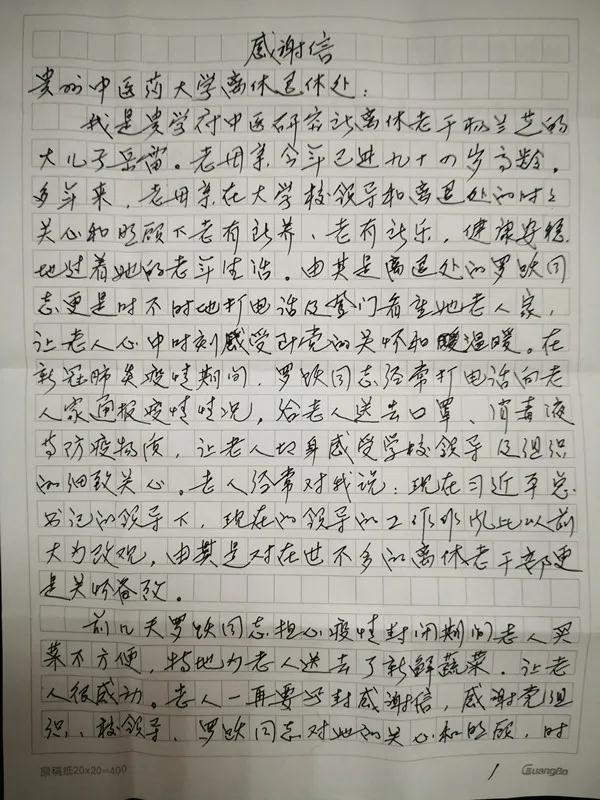 感谢信
贵州中医药大学离休退休处：
我是贵学府中医研究所离休老干杨兰芝的
大儿子岳雷。老母亲今年已进九十四岁高龄。
多年来，老母亲在大学校领导和离退处的时时
关心和照顾下老有所养、老有所乐，健康安稳
地过着她的老年生活。由其是离退处的罗轶同
志更是时不时地打电话及登门看望她老人家，
让老人心中时刻感受到党的关怀和温暖。在
新冠肺炎疫情期间，罗轶同志经常打电话向老
人家通报疫情情况，给老人送去口罩、消毒液
等防疫物质，让老人切身感受学校领导及组织
的细致关心。老人经常对我说：现在习近平总
书记的领导下，现在的领导的工作作风比以前
大为改观，由其是对在世不多的离休老干部更
是关怀备致。
前几天罗轶同志担心疫情封闭期间老人买
菜不方便，特地为老人送去了新鲜蔬菜。让老
人很感动。老人一再要写封感谢信，感谢党组
织、校领导、罗轶同志对她的关心和照顾，时
原稿纸20x20=400
1
GuangBo